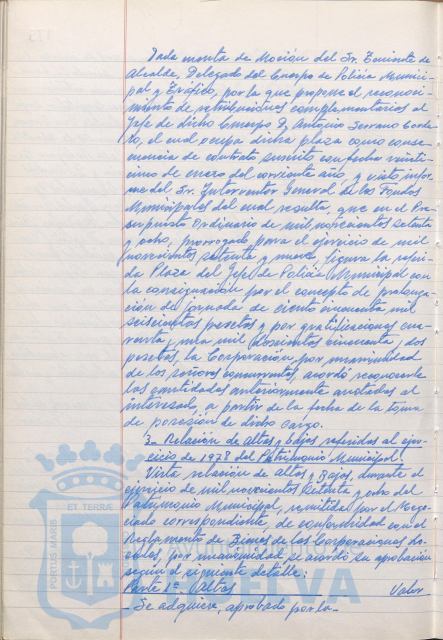 Dada cuenta de Moción del Sr. Teniente de
Alcalde, Delegado del Cuerpo de Policía Munici-
pal y Tráfico, por la que propone el reconoci-
miento de retribuciones complementarias al
Jefe de dicho Cuerpo D. Antonio Serrano Corde-
ro, el cual ocupa dicha plaza como conse-
cuencia de contrato suscrito con fecha veinti-
cinco de enero del corriente año, y visto infor-
me del Sr. Interventor General de los Fondos
Municipales del cual resulta, que en el Pre-
supuesto Ordinario de mil novecientos setenta
y ocho, prorrogado para el ejercicio de mil
novecientos setenta y nueve, figura la referi-
da Plaza del Jefe de Policía Municipal con
la consignación por el concepto de prolonga-
ción de jornada de ciento cincuenta mil
seiscientas pesetas y por gratificaciones cua-
renta y una mil doscientas cincuenta y dos
pesetas, la Corporación por unanimidad
de los señores concurrentes, acordó reconocerle
las cantidades anteriormente anotadas al
interesado, a partir de la fecha de la toma
de posesión de dicho cargo.
3.- Relación de altas y bajas referidas al ejer-
cicio de 1978 del Patrimonio Municipal.
Vista relación de Altas y Bajas, durante el
ejercicio de mil novecientos setenta y ocho del
Patrimonio Municipal, remitida por el Nego-
ciado correspondiente, de conformidad con el
Reglamento de Bienes de las Corporaciones Lo-
cales, por unanimidad se acordó su aprobación
según el siguiente detalle:
Parte 1ª Altas Valor
- Se adquiere, aprobado por la-
PORTUS MARIS ET TERRÆ
HUELVA